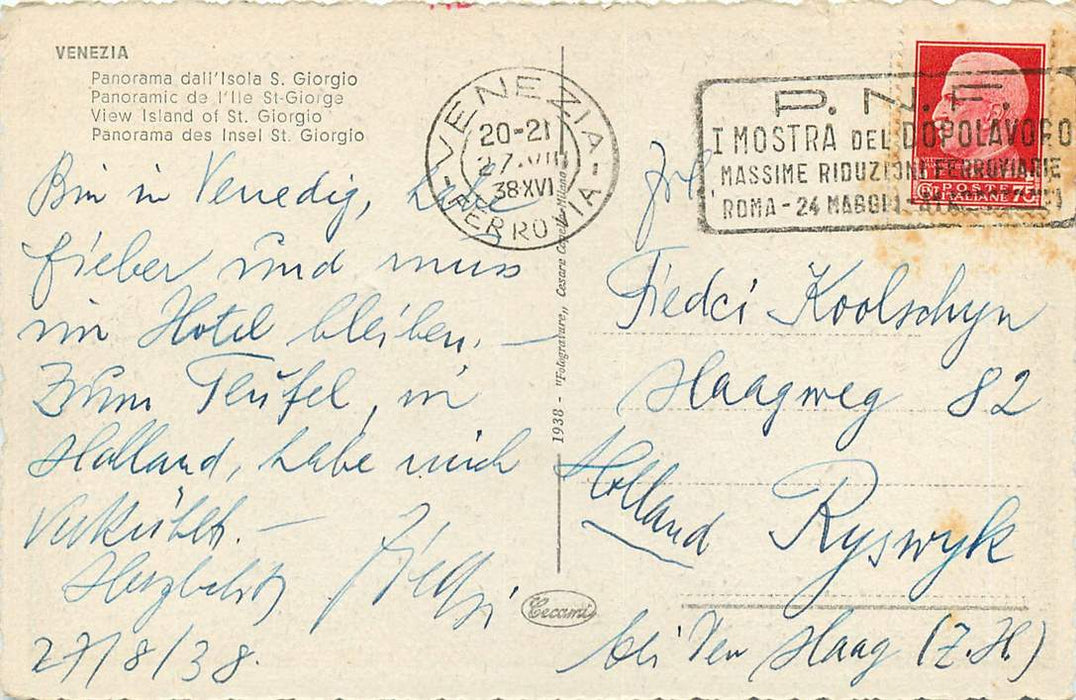 VENEZIA
Panorama dall'Isola S. Giorgio
Panoramic de l'Ile St-Giorge
View Island of St. Giorgio
Panorama des Insel St. Giorgio
Bin in Venedig, habe
Fieber und muss
im Hotel bleiben. —
Zum Teufel, in
Holland, habe mich
verkühlt. —
Herzlichst
27/8/38.
VENEZIA
FERROVIA
20-21
27·VIII
38·XVI
1938 - "Fotogravure" Cesare Capello - Milano
Cecami
P. N. F.
I MOSTRA DEL DOPOLAVORO
MASSIME RIDUZIONI FERROVIARIE
ROMA - 24 MAGGIO -
POSTE
ITALIANE
CT 75
Frl.
Koolschyn
Haagweg 82
Holland
Ryswyk
bei Den Haag (Z.H.)